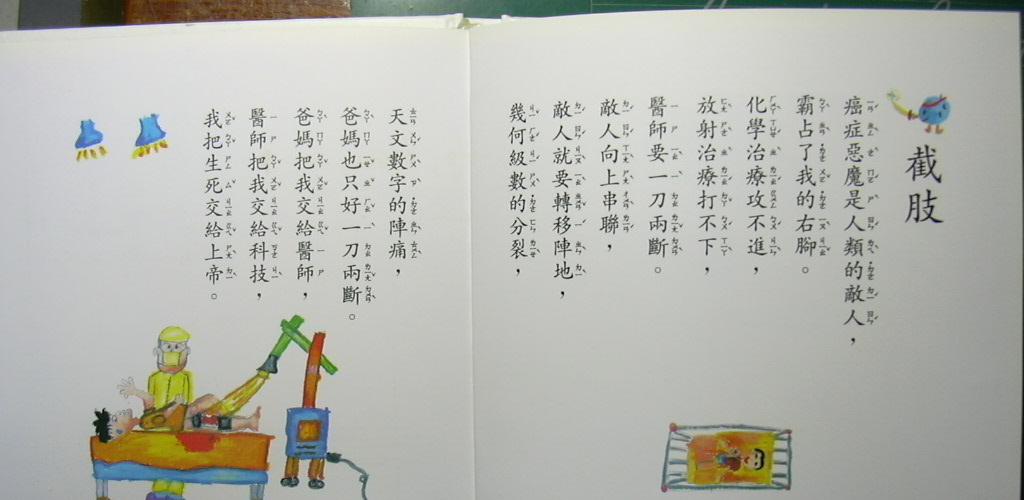 截肢
癌症惡魔是人類的敵人，
霸占了我的右腳。
化學治療攻不進，
放射治療打不下，
醫師要一刀兩斷。
敵人向上串聯，
敵人就要轉移陣地，
幾何級數的分裂，
天文數字的陣痛，
爸媽也只好一刀兩斷。
爸媽把我交給醫師，
醫師把我交給科技，
我把生死交給上帝。